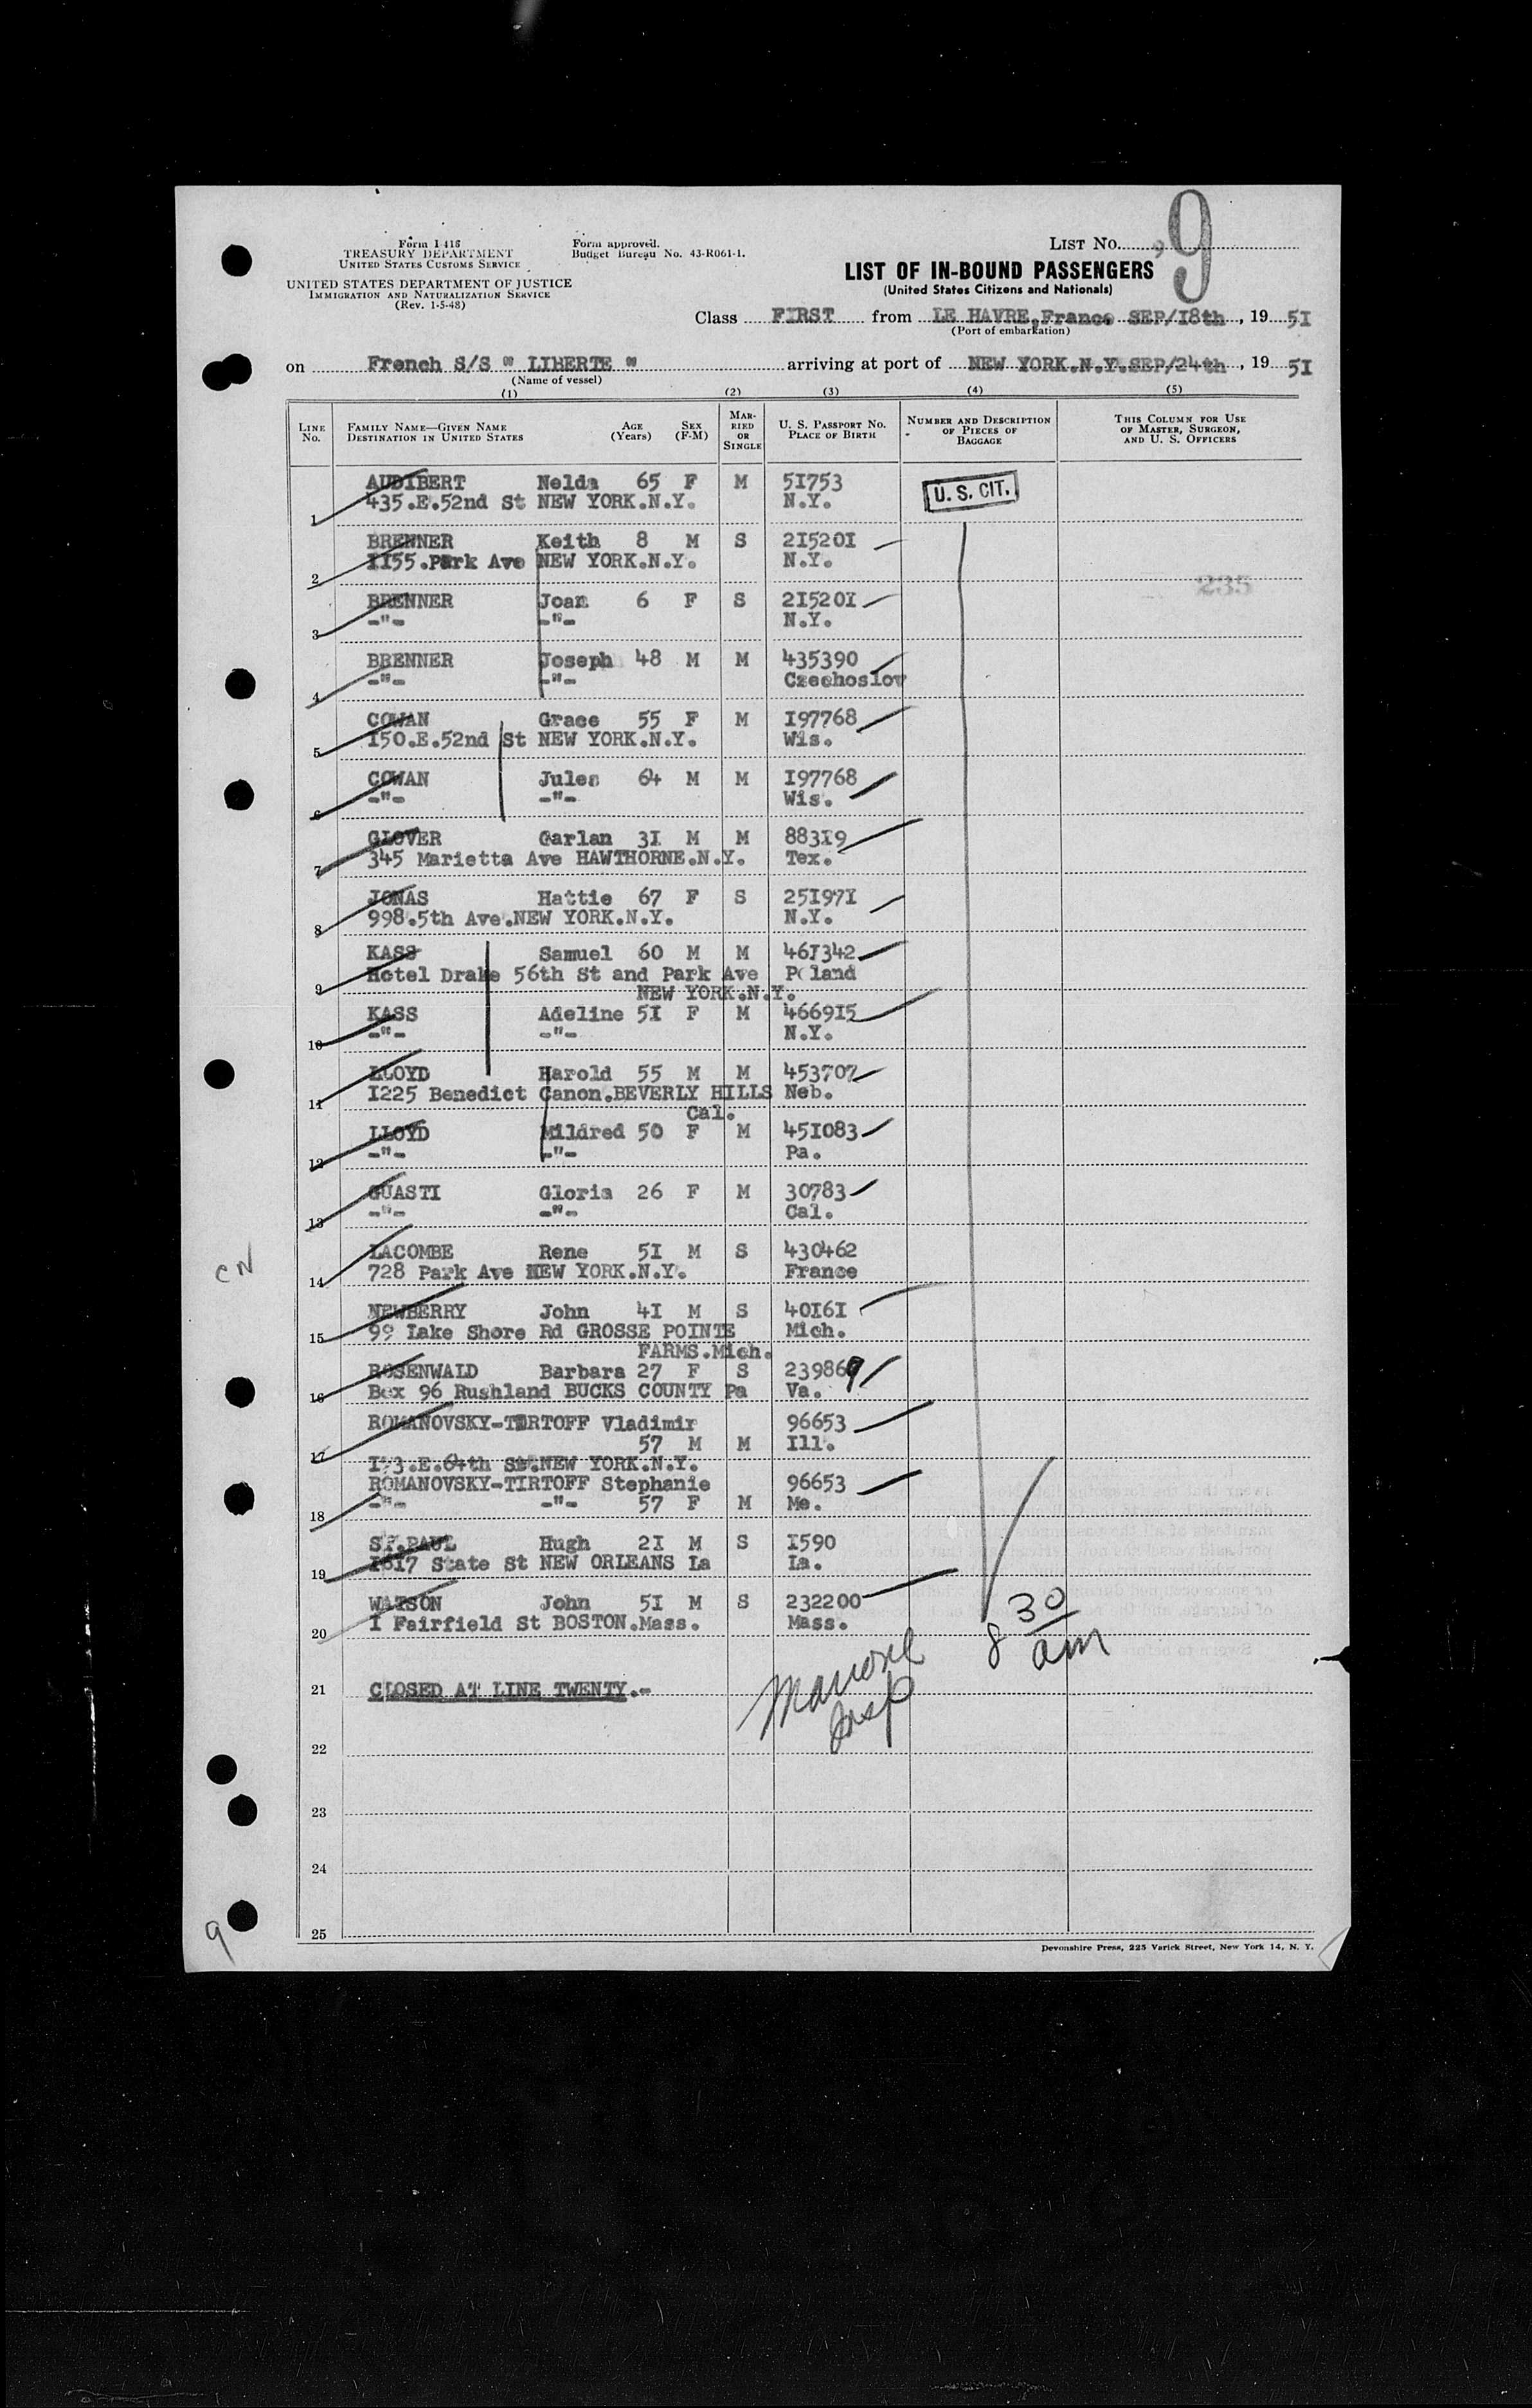 Form I 416
TREASURY DEPARTMENT
UNITED STATES CUSTOMS SERVICE
UNITED STATES DEPARTMENT OF JUSTICE
IMMIGRATION AND NATURALIZATION SERVICE
(Rev. 1-5-48)
Form approved.
Budget Bureau No. 43-R061-1.
LIST NO. 9
LIST OF IN-BOUND PASSENGERS
(United States Citizens and Nationals)
Class FIRST from LE HAVRE,France SEP/18th, 1951
(Port of embarkation)
on French S/S " LIBERTE " arriving at port of NEW YORK.N.Y.SEP/24th, 1951
(Name of vessel)
(1) (2) (3) (4) (5)
LINE No. FAMILY NAME—GIVEN NAME DESTINATION IN UNITED STATES AGE (Years) SEX (F-M) MARRIED OR SINGLE U. S. PASSPORT NO. PLACE OF BIRTH NUMBER AND DESCRIPTION OF PIECES OF BAGGAGE THIS COLUMN FOR USE OF MASTER, SURGEON, AND U. S. OFFICERS
AUDIBERT Nelda 65 F M 51753 U. S. CIT.
1 435.E.52nd St NEW YORK.N.Y. N.Y.
BRENNER Keith 8 M S 215201
2 1155.Park Ave NEW YORK.N.Y. N.Y.
235
BRENNER Joan 6 F S 215201
3 -"- -"- N.Y.
BRENNER Joseph 48 M M 435390
4 -"- -"- Czechoslov
COWAN Grace 55 F M 197768
5 150.E.52nd St NEW YORK.N.Y. Wis.
COWAN Jules 64 M M 197768
6 -"- -"- Wis.
GLOVER Carlan 31 M M 88319
7 345 Marietta Ave HAWTHORNE.N.Y. Tex.
JONAS Hattie 67 F S 251971
8 998.5th Ave.NEW YORK.N.Y. N.Y.
KASS Samuel 60 M M 461342
9 Hotel Drake 56th St and Park Ave Poland
NEW YORK.N.Y.
KASS Adeline 51 F M 466915
10 -"- -"- N.Y.
LLOYD Harold 55 M M 453707
11 1225 Benedict Canon.BEVERLY HILLS Neb.
Cal.
LLOYD Mildred 50 F M 451083
12 -"- -"- Pa.
GUASTI Gloria 26 F M 30783
13 -"- -"- Cal.
CN
LACOMBE Rene 51 M S 430462
14 728 Park Ave NEW YORK.N.Y. France
NEWBERRY John 41 M S 40161
15 99 Lake Shore Rd GROSSE POINTE Mich.
FARMS.Mich.
ROSENWALD Barbara 27 F S 239869
16 Box 96 Rushland BUCKS COUNTY Pa Va.
ROMANOVSKY-TIRTOFF Vladimir 96653
17 57 M M Ill.
E.64th St.NEW YORK.N.Y.
ROMANOVSKY-TIRTOFF Stephanie 96653
18 -"- -"- 57 F M Me.
ST.PAUL Hugh 21 M S 1590
19 1617 State St NEW ORLEANS La La.
WATSON John 51 M S 232200
20 1 Fairfield St BOSTON.Mass. Mass.
8 30 am
Insp
21 CLOSED AT LINE TWENTY.-
22
23
24
25
9
Devonshire Press, 225 Varick Street, New York 14, N. Y.